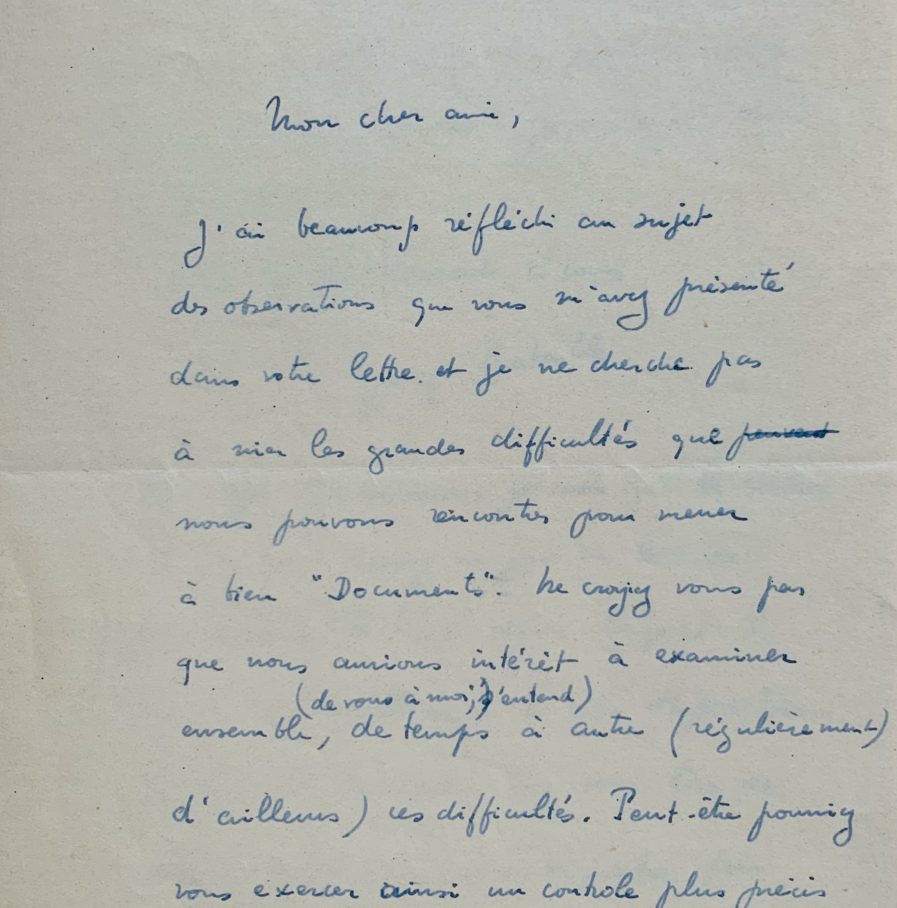 Mon cher ami,
J'ai beaucoup réfléchi au sujet
des observations que vous m'avez présenté
dans votre lettre et je ne cherche pas
à nier les grandes difficultés que peuvent
nous pouvons rencontrer pour mener
à bien "Documents". Ne croyez vous pas
que nous aurions intérêt à examiner
(de vous à moi, s'entend)
ensemble, de temps à autre (régulièrement)
d'ailleurs) ces difficultés. Peut-être pourriez
vous exercer ainsi un controle plus précis